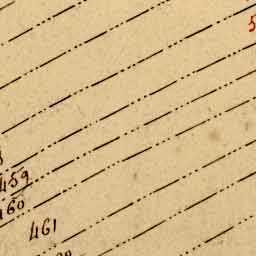 5
459
460
461